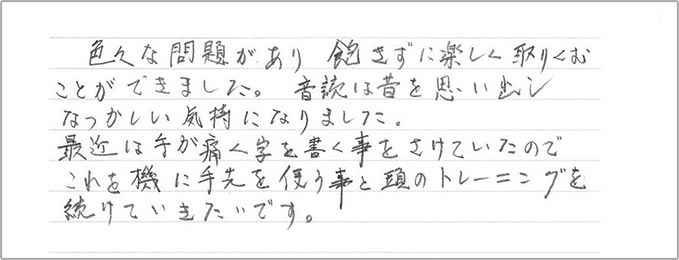 色々な問題があり 飽きずに楽しく取りくむ
ことができました。 音読は昔を思い出し
なつかしい気持になりました。
最近は手が痛く字を書く事をさけていたので
これを機に手先を使う事と頭のトレーニングを
続けていきたいです。